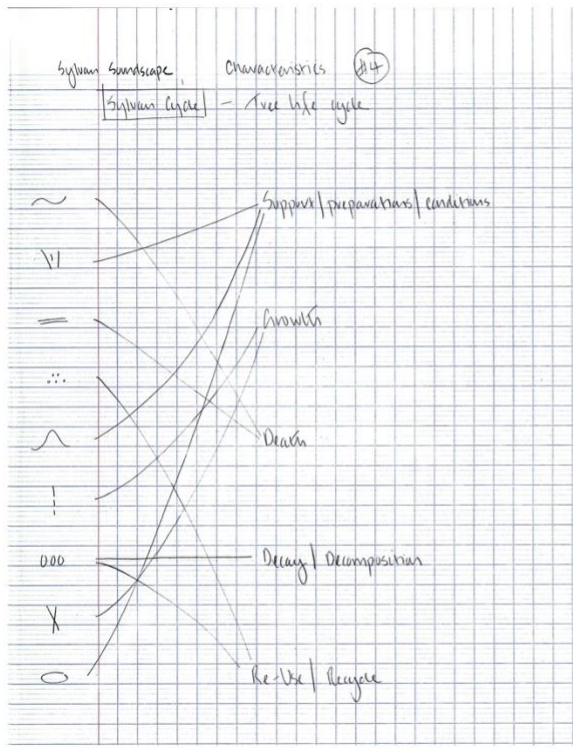 Sylvan Soundscape Characteristics #4
Sylvan Cycle - Tree life cycle
Support/preparations/conditions
Growth
Death
Decay/Decomposition
Re-Use/Recycle